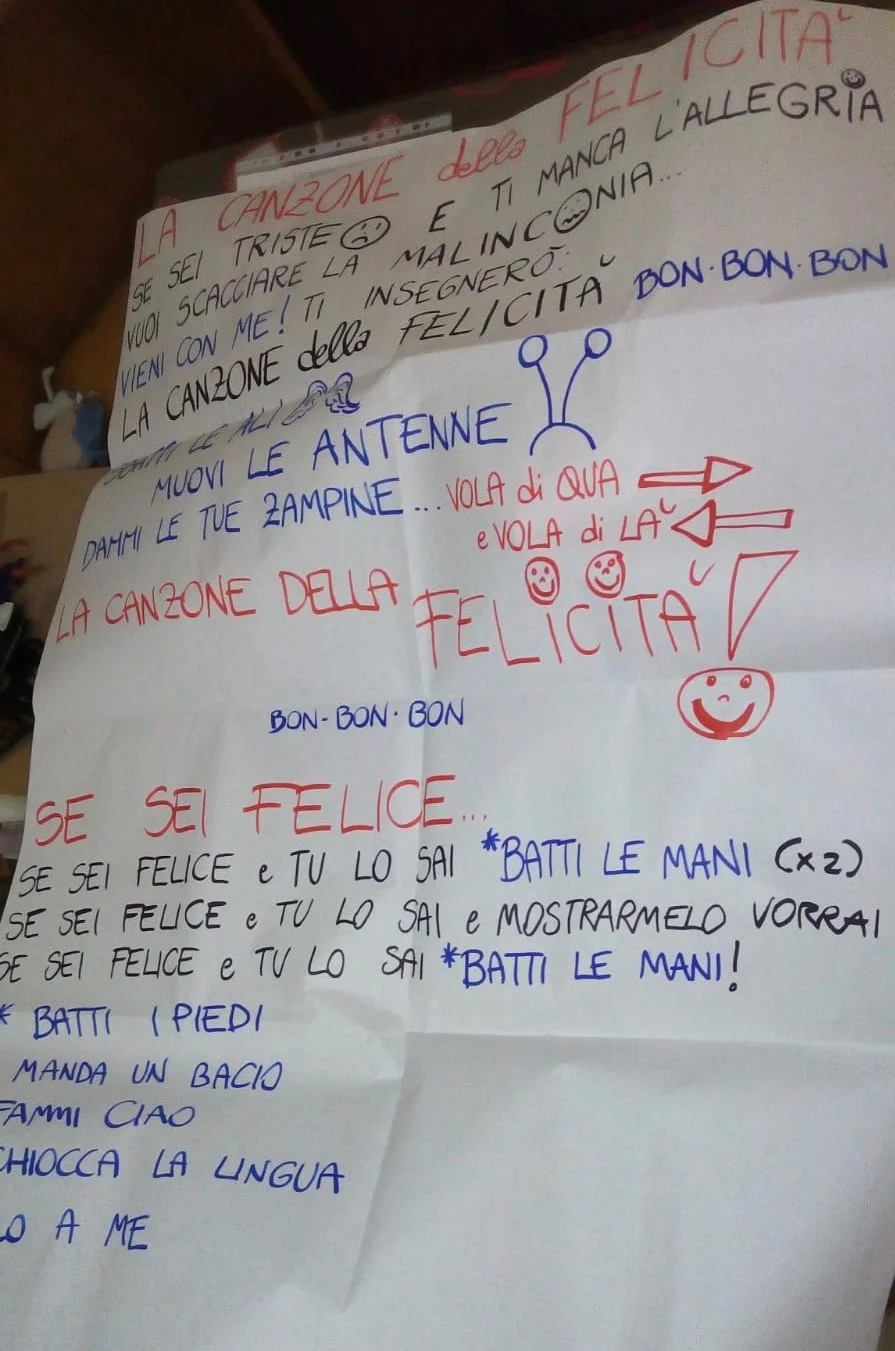 LA CANZONE della FELICITÀ
SE SEI TRISTE E TI MANCA L'ALLEGRIA
VUOI SCACCIARE LA MALINCONIA...
VIENI CON ME! TI INSEGNERÒ:
LA CANZONE della FELICITÀ BON·BON·BON
LE ALI
MUOVI LE ANTENNE
DAMMI LE TUE ZAMPINE...VOLA di QUA
e VOLA di LÀ
LA CANZONE DELLA FELICITÀ!
BON-BON·BON
SE SEI FELICE...
SE SEI FELICE e TU LO SAI *BATTI LE MANI (x2)
SE SEI FELICE e TU LO SAI e MOSTRARMELO VORRAI
SE SEI FELICE e TU LO SAI *BATTI LE MANI!
* BATTI I PIEDI
MANDA UN BACIO
FAMMI CIAO
CHIOCCA LA LINGUA
LO A ME